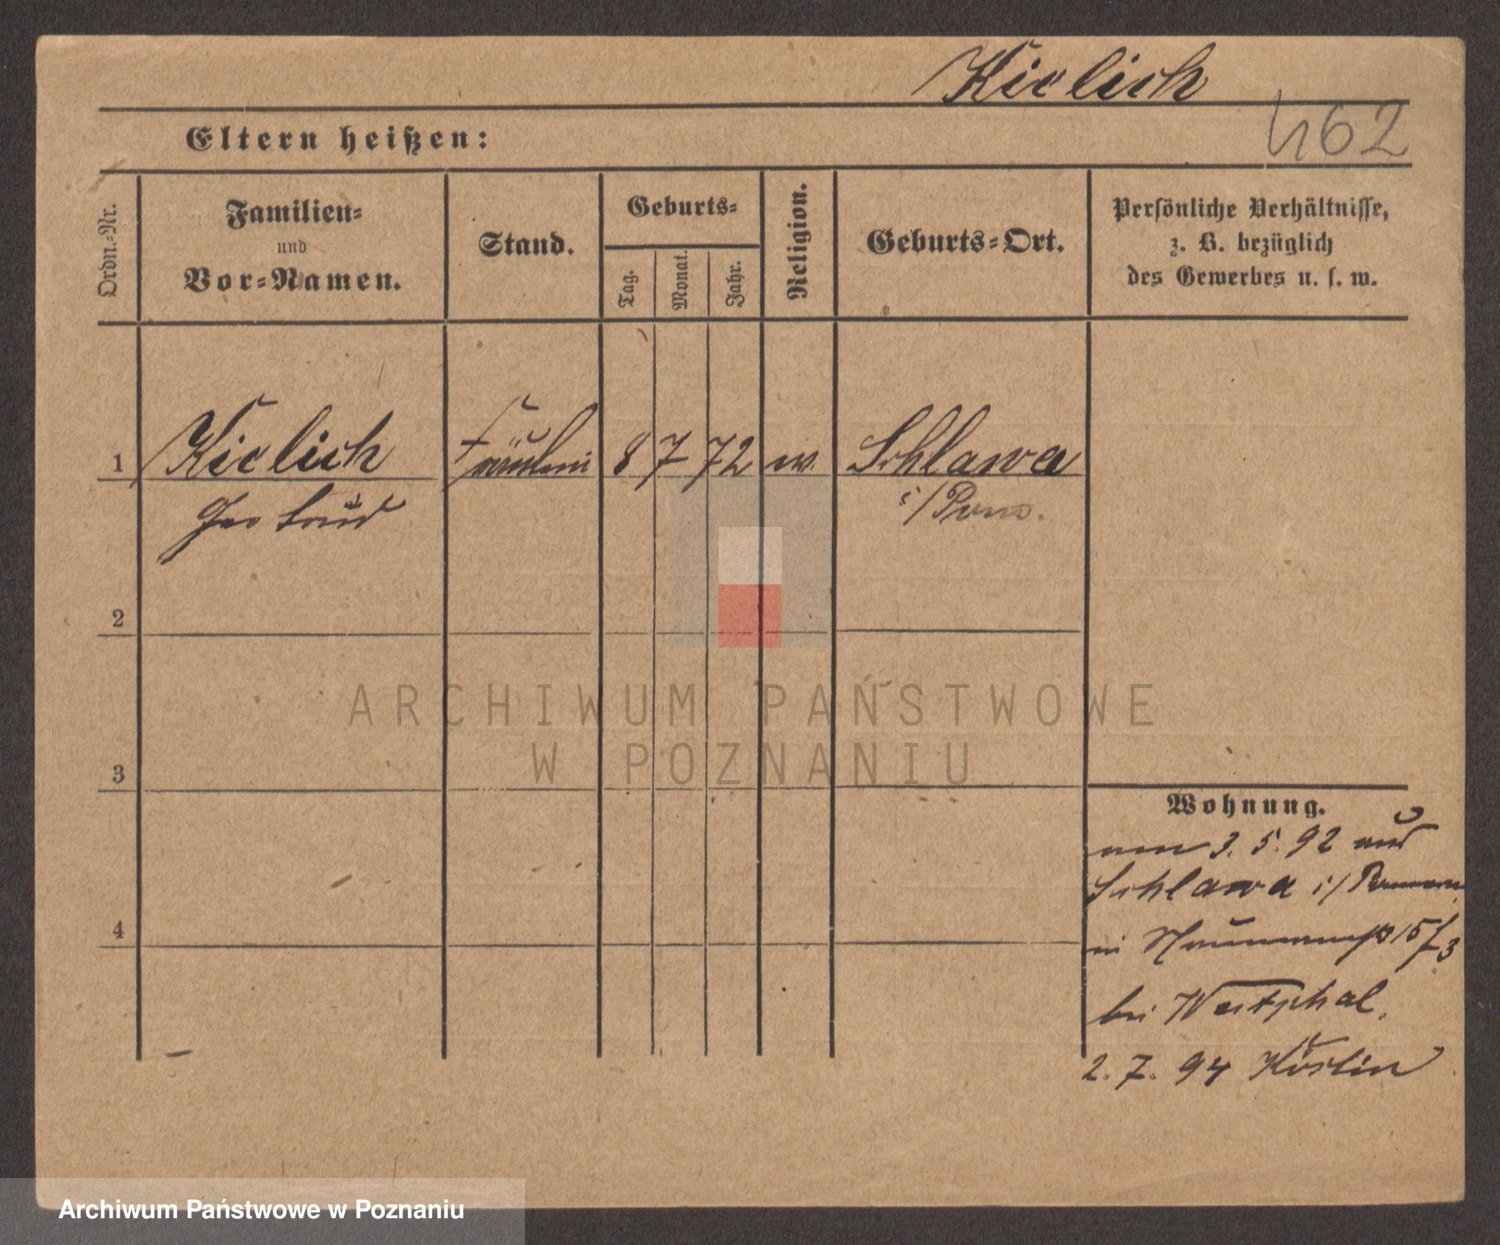 Kielich
462
Eltern heißen:
Ordn.-Nr.
Familien-
und
Vor-Namen.
Stand.
Geburts-
Tag.
Monat.
Jahr.
Religion.
Geburts-Ort.
Persönliche Verhältnisse,
z. B. bezüglich
des Gewerbes u. s. w.
1
Kielich
Gertrud
Fräulein
8
7
72
ev.
Schlawa
i/Pom.
2
3
4
ARCHIWUM PAŃSTWOWE
W POZNANIU
Wohnung.
am 3. 5. 92 aus
Schlawa i/Pommern
in 15/3
bei Westphal.
2. 7. 94 Köslin
Archiwum Państwowe w Poznaniu